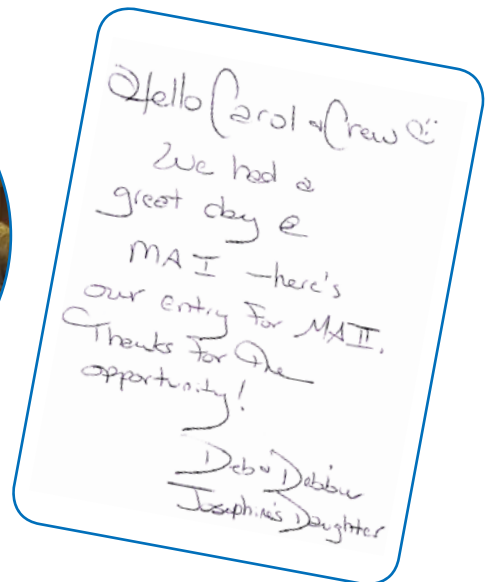 Hello Carol & Crew
We had a
great day @
MA I - here's
our entry for MA II.
Thanks for the
opportunity!
Deb & Debbie
Josephine's Daughter